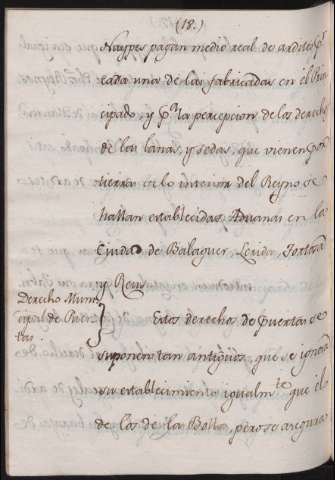 (18.)
Naypes pagan medio real de ardites pr
cada una de las fabricadas en el Prin
cipado, y pa la percepcion de los derechos
de las lanas, y sedas, que vienen por
tierra en lo interior del Reyno se
hallan establecidas Aduanas en las
Ciudad de Balaguer, Lerida, Tortosa
y Reus
Derecho Muni
cipal de Puer
tas
Estos derechos de puertas se
suponen tan antiguos, que se ignora
su establecimiento igualmte que el
de los de la Bolla, pero se asegura